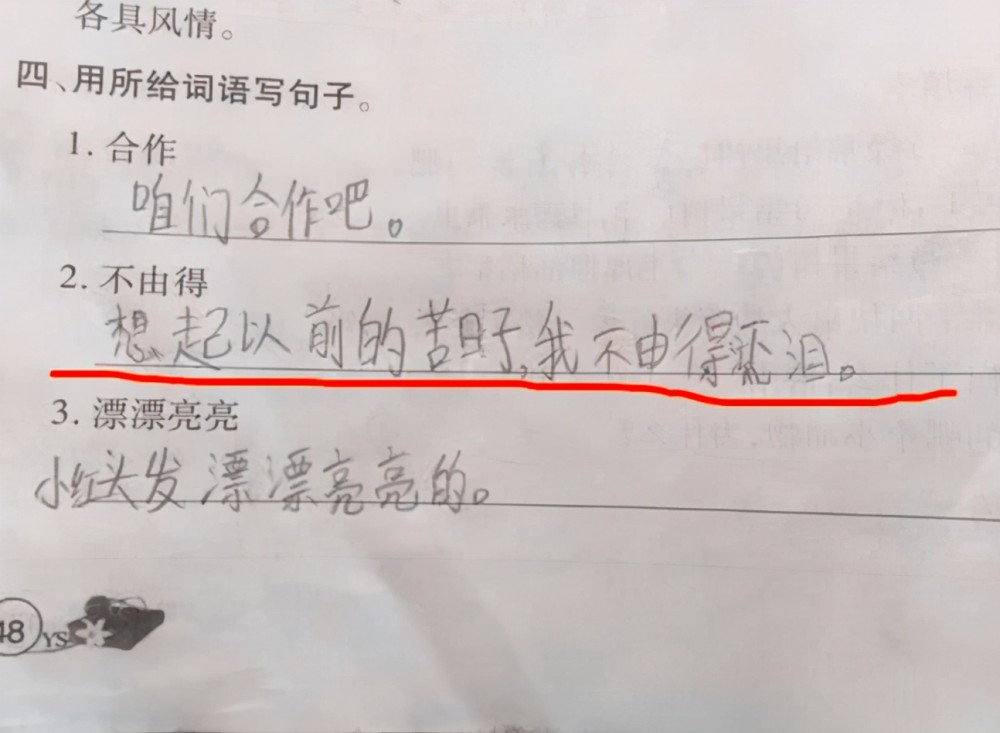 各具风情。
四、用所给词语写句子。
1. 合作
咱们合作吧。
2. 不由得
想起以前的苦日子,我不由得流泪。
3. 漂漂亮亮
小红头发漂漂亮亮的。
48 YS